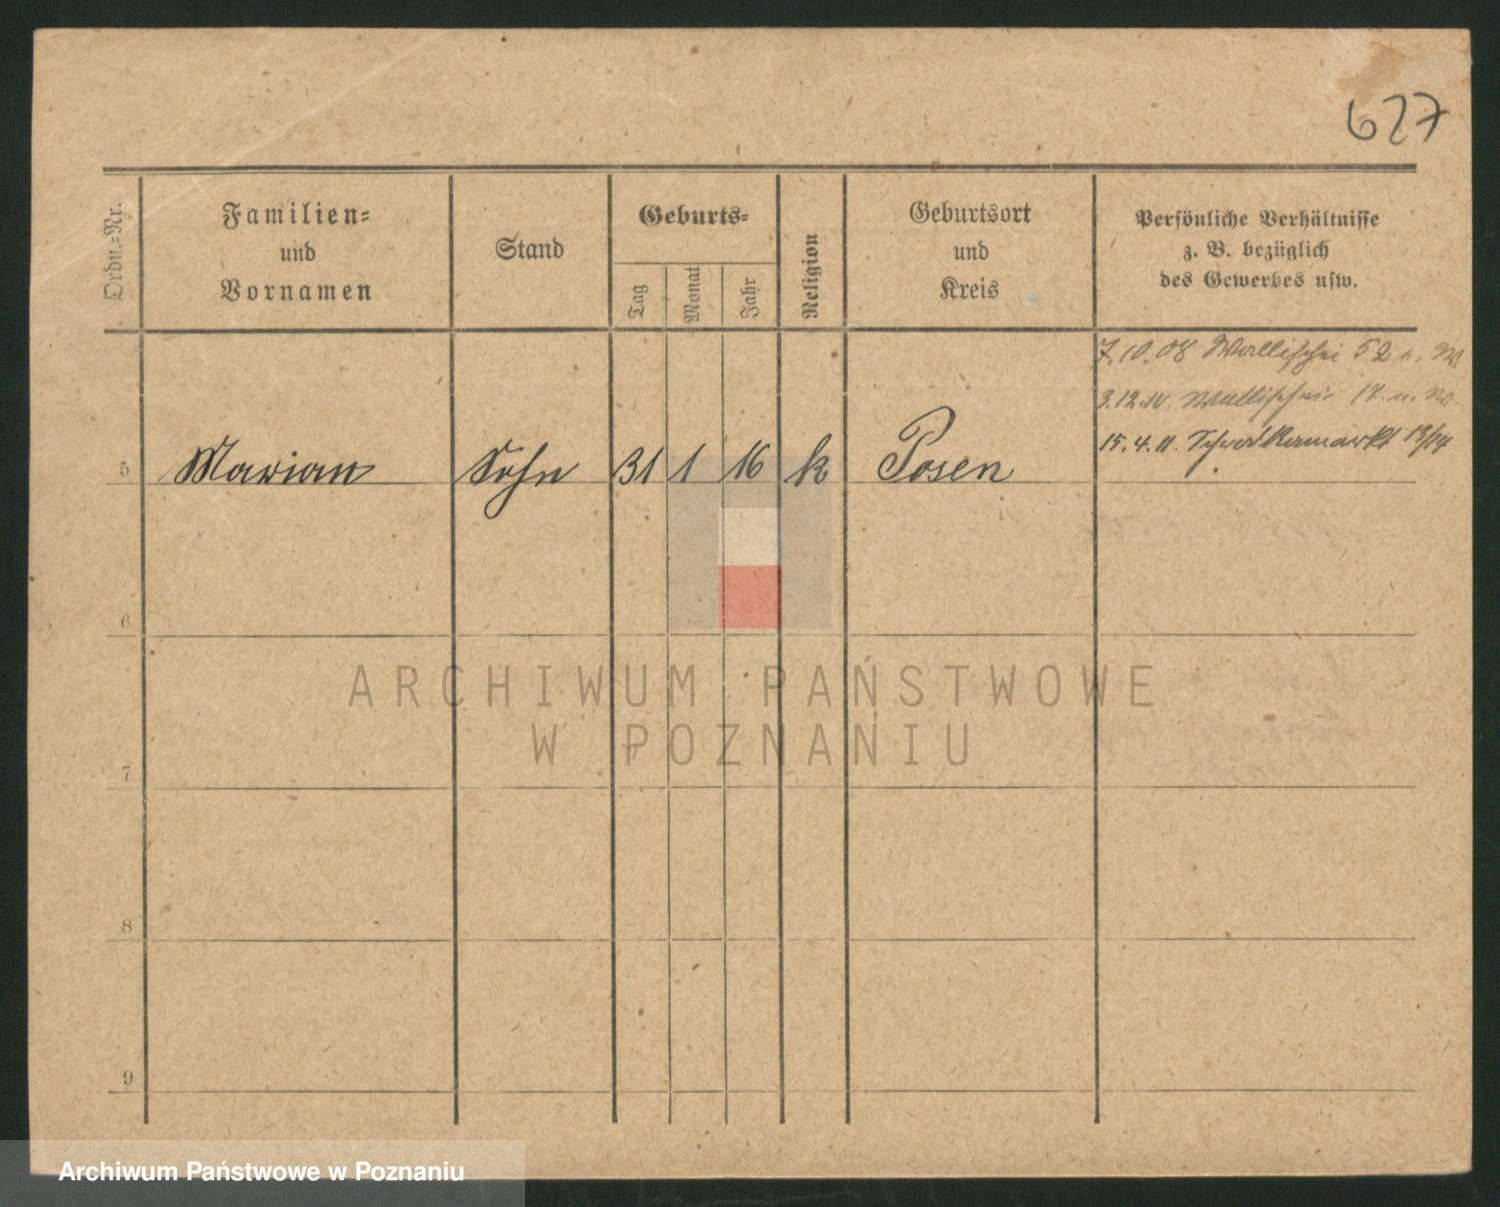 627
Ordn.=Nr.
Familien=
und
Vornamen
Stand
Geburts=
Tag
Monat
Jahr
Religion
Geburtsort
und
Kreis
Persönliche Verhältnisse
z. B. bezüglich
des Gewerbes usw.
7.10.08 Wallischei 52 u. W.
3.12.10. Wallischei 17. u. W.
15.4.11. 13/14
5 Marian Sohn 31 1 16 k Posen
6
7
8
9
ARCHIWUM PAŃSTWOWE
W POZNANIU
Archiwum Państwowe w Poznaniu